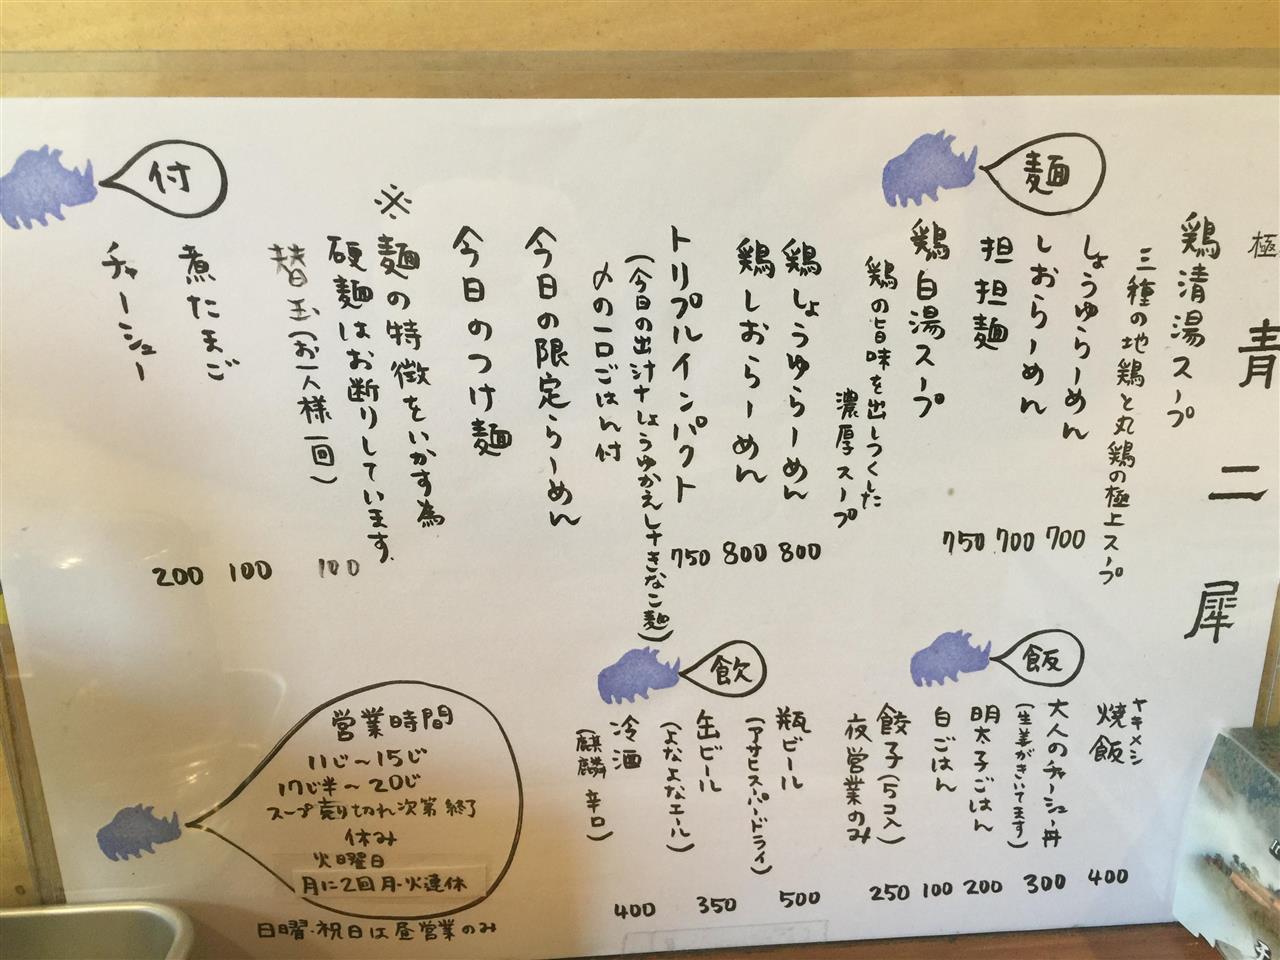 極
青二犀
麺
鶏清湯スープ
三種の地鶏と丸鶏の極上スープ
しょうゆらーめん 700
しおらーめん 700
担担麺 750
鶏白湯スープ
鶏の旨味を出しつくした
濃厚スープ
鶏しょうゆらーめん 800
鶏しおらーめん 800
トリプルインパクト 750
(今日の出汁+しょうゆかえし+きなこ麺)
〆の一口ごはん付
今日の限定らーめん
今日のつけ麺
※麺の特徴をいかす為
硬麺はお断りしています.
替玉(お一人様一回) 100
付
煮たまご 100
チャーシュー 200
飯
ヤキメシ
焼飯 400
大人のチャーシュー丼 300
(生姜がきいてます)
明太子ごはん 200
白ごはん 100
餃子(5コ入) 250
夜営業のみ
飲
瓶ビール 500
(アサヒスーパードライ)
缶ビール 350
(よなよなエール)
冷酒 400
(麒麟 辛口)
営業時間
11じ〜15じ
17じ半〜20じ
スープ売り切れ次第終了
休み
火曜日
月に2回月・火連休
日曜・祝日は昼営業のみ